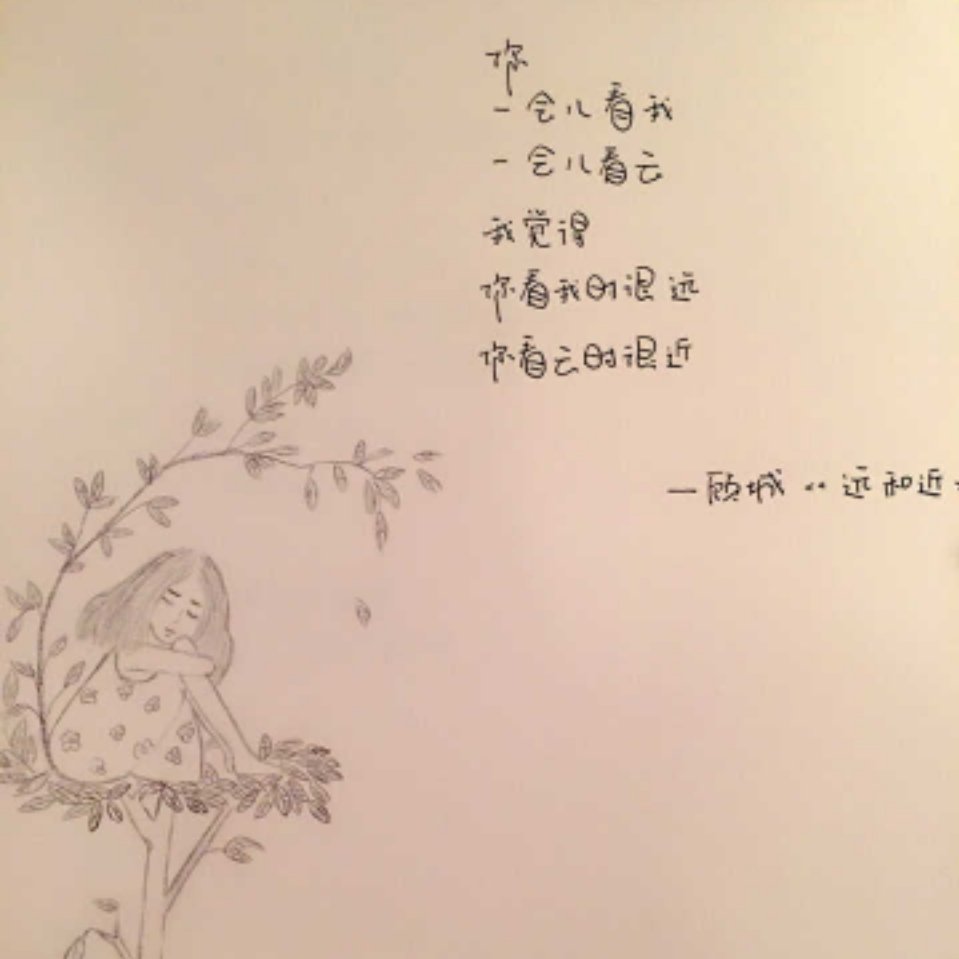 你
一会儿看我
一会儿看云
我觉得
你看我时很远
你看云时很近
—顾城《远和近